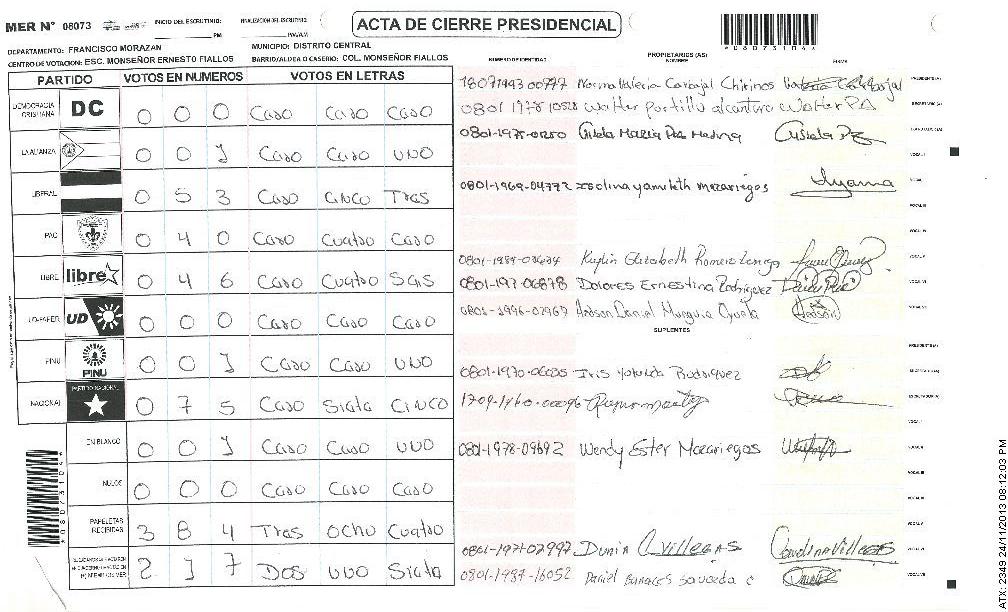 MER N° 08073 INICIO DEL ESCRUTINIO: PM FINALIZACION DEL ESCRUTINIO: PM/AM
ACTA DE CIERRE PRESIDENCIAL
*08073104*
DEPARTAMENTO: FRANCISCO MORAZAN MUNICIPIO: DISTRITO CENTRAL
CENTRO DE VOTACION: ESC. MONSEÑOR ERNESTO FIALLOS BARRIO/ALDEA O CASERIO: COL. MONSEÑOR FIALLOS
NUMERO DE IDENTIDAD PROPIETARIOS (AS) NOMBRE FIRMA
PARTIDO VOTOS EN NUMEROS VOTOS EN LETRAS
DEMOCRACIA CRISTIANA DC 0 0 0 Caso Caso Caso
LA ALIANZA 0 0 1 Caso Caso UNO
LIBERAL 0 5 3 Caso CINCO Tras
PAC 0 4 0 Caso Cuatro Caso
LIBRE libre 0 4 6 Caso Cuatro Sais
UD-FAPER UD 0 0 0 Caso Caso Caso
PINU PINU 0 0 1 Caso Caso UNO
NACIONAL PARTIDO NACIONAL 0 7 5 Caso Siata CINCO
EN BLANCO 0 0 1 Caso Caso UNO
NULOS 0 0 0 Caso Caso Caso
PAPELETAS RECIBIDAS 3 8 4 Tras OCHO Cuatro
2 1 7 DOS UNO Siata
18071993 00777 Norma Valeria Carbajal Chirinos PRESIDENTE (A)
0801 1978 10528 Walter portillo alcantara Walter PA SECRETARIO (A)
0801-1975-01250 Gisela Maria Paz Medina
0801-1969-04772 Isolina yamileth mazariegos Iyama
0801-1989-03634 Keylin Elizabeth Romero Zuniga
0801-197-06878 Dolores Ernestina Rodriguez
0801-1996-02969 Andson Daniel Munguia Oyuela Andson
SUPLENTES
0801-1970-06605 Iris Yolanda Rodriguez
1709-1960-00096
0801-1978-09692 Wendy Ester Mazariegos
0801-1971-02997 Dunia C Villegas Carolina Villegas
0801-1987-16052 Daniel Sauceda
*08073104*
ATX: 2349 24/11/2013 08:12:03 PM